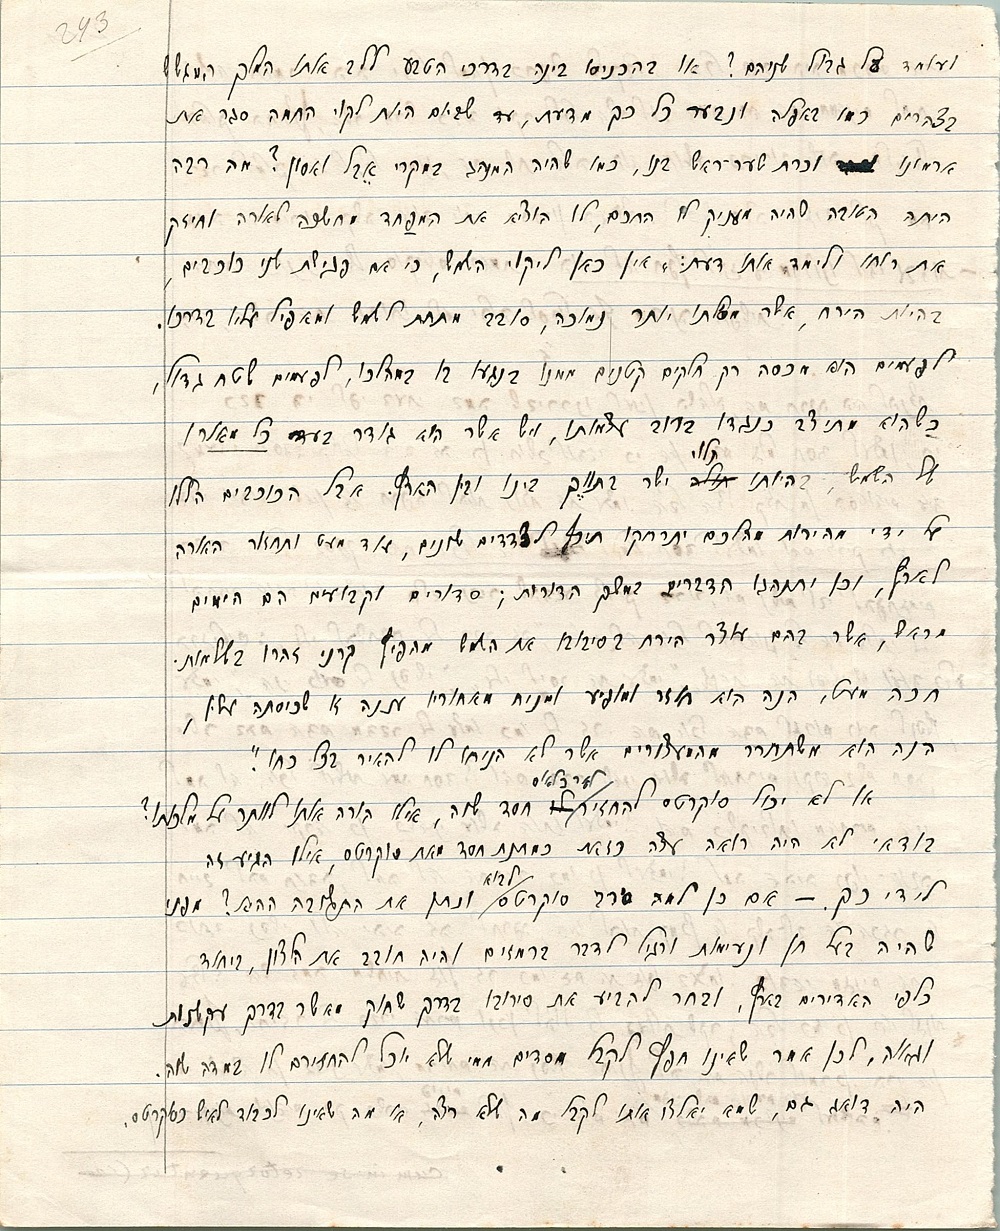 243
ועומד על גבול שניהם? או בהכניסו בינה בדרכי הטבע ללב אותו המלך המגשש
בצהרים כמו באפלה ונבער כל כך מדעת, עד שביום היות לקוי החמה סגר את
ארמונו וכרת שער־ראש בנו, כמו שהיה המנהג במקרי אבל ואסון? מה רבה
היתה הטובה שהיה מעניק לו החכם, לו הוציא את המפחד מחשכה לאורה וחיזק
את רוחו ולימד אותו דעת: אין כאן ליקוי השמש, כי אם פגישת שני כוכבים,
בהיות הירח, אשר מסלתו יותר נמוכה, סובב מתחת לשמש ומאפיל עליו בדרכו.
לפעמים הוא מכסה רק חלקים קטנים ממנו בנגעו בו במהלכו, לפעמים שטח גדול,
כשהוא מתיצב כנגדו ברוב עצמותו, ויש אשר הוא גודר בעד כל מאורו
של השמש, בהיותו תלוי ישר בתווך בינו ובין הארץ. אבל הכוכבים הללו
על ידי מהירות מהלכם יתרחקו תיכף לצדדים שונים, עוד מעט ותחזור האורה
לארץ, וכן יתנהגו הדברים במשך הדורות; סדורים וקבועים הם הימים
מראש, אשר בהם עוצר הירח בסיבובו את השמש מהפיץ קרני זהרו בשלמות.
חכה מעט, הנה הוא חוזר ומופיע ומניח מאחוריו עננה זו שכיסתה עליו,
הנה הוא משתחרר מהמעצורים אשר לא הניחו לו להאיר בכל כחו!"
או לא יכול סוקרטס להחזיר לארכלאוס חסד שוה, אילו הורה אותו לוותר על מלכותו?
בודאי לא היה רואה עצה כזאת כמתנת חסד מאת סוקרטס, אילו הגיע זה
לידי כך. — אם כן למה סרב סוקרטס לבוא ונתן את התשובה ההיא? מפני
שהיה בעל חן ונעימות ורגיל לדבר ברמזים והיה חובב את הלצון, ביחוד
כלפי האדירים בארץ, ובחר להביע את סירובו בדרך שחוק מאשר בדרך עקשנות
וגאוה, לכן אמר שאינו חפץ לקבל חסדים ממי שלא יוכל להחזירם לו במדה שוה.
היה דואג גם, שמא יאלצו אותו לקבל מה שלא רצה, או מה שאינו לכבוד לאיש כסוקרטס.